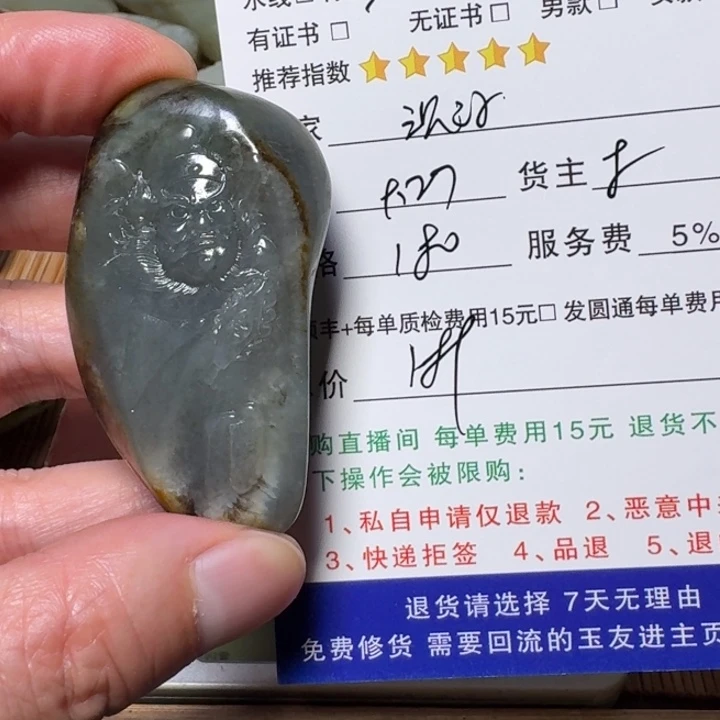 有证书□ 无证书□ 男款□
推荐指数
家
货主
180 服务费 5%
丰+每单质检费用15元□ 发圆通每单费用
价
购直播间 每单费用15元 退货不
下操作会被限购：
1、私自申请仅退款 2、恶意中
3、快递拒签 4、品退 5、退
退货请选择 7天无理由
免费修货 需要回流的玉友进主页